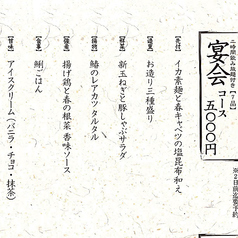 二時間飲み放題付き【七品】
宴会コース
五〇〇〇円
※2日前迄要予約
イカ素麺と春キャベツの塩昆布和え
お造り三種盛り
新玉ねぎと豚しゃぶサラダ
鰆のレアカツ タルタル
揚げ鶏と春の根菜 香味ソース
鯛ごはん
アイスクリーム（バニラ・チョコ・抹茶）